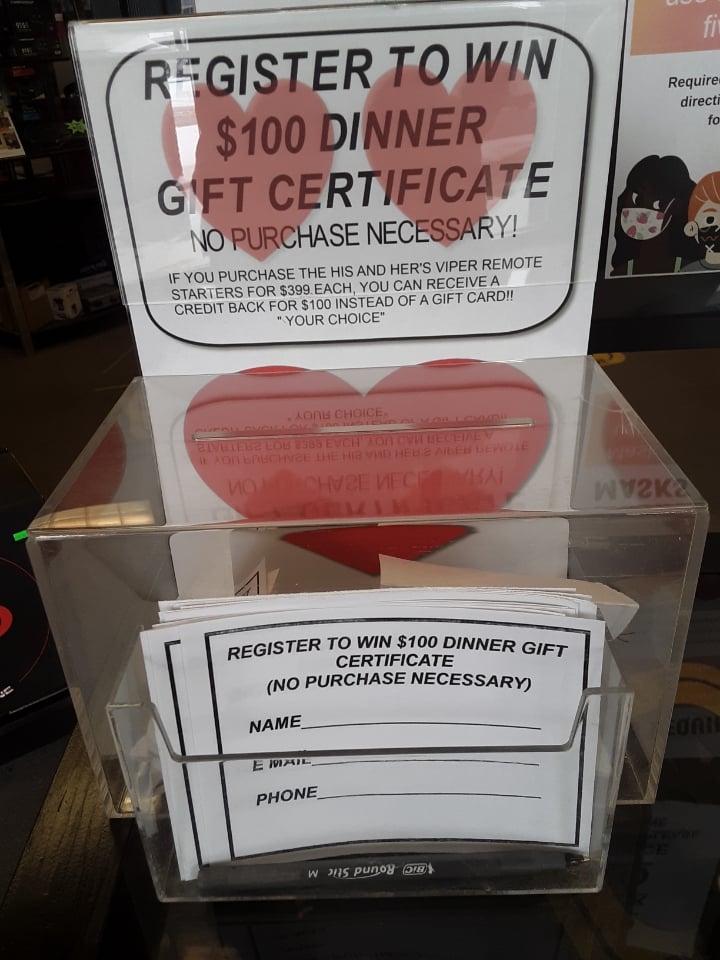 REGISTER TO WIN
$100 DINNER
GIFT CERTIFICATE
NO PURCHASE NECESSARY!
IF YOU PURCHASE THE HIS AND HER'S VIPER REMOTE
STARTERS FOR $399 EACH, YOU CAN RECEIVE A
CREDIT BACK FOR $100 INSTEAD OF A GIFT CARD!!
"YOUR CHOICE"
Require
directi
fo
MASKS
REGISTER TO WIN $100 DINNER GIFT
CERTIFICATE
(NO PURCHASE NECESSARY)
NAME
E MAIL
PHONE
BIC Round Stic M